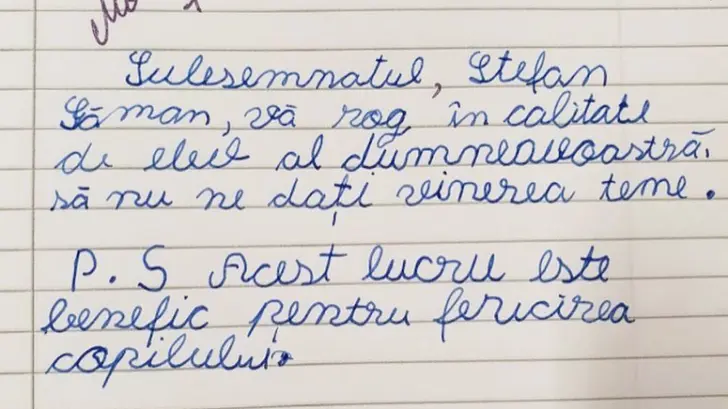 Subsemnatul, Stefan
Săman, vă rog în calitate
de elev al dumneavoastră,
să nu ne dați vinerea teme.
P.S Acest lucru este
benefic pentru fericirea
copilului.